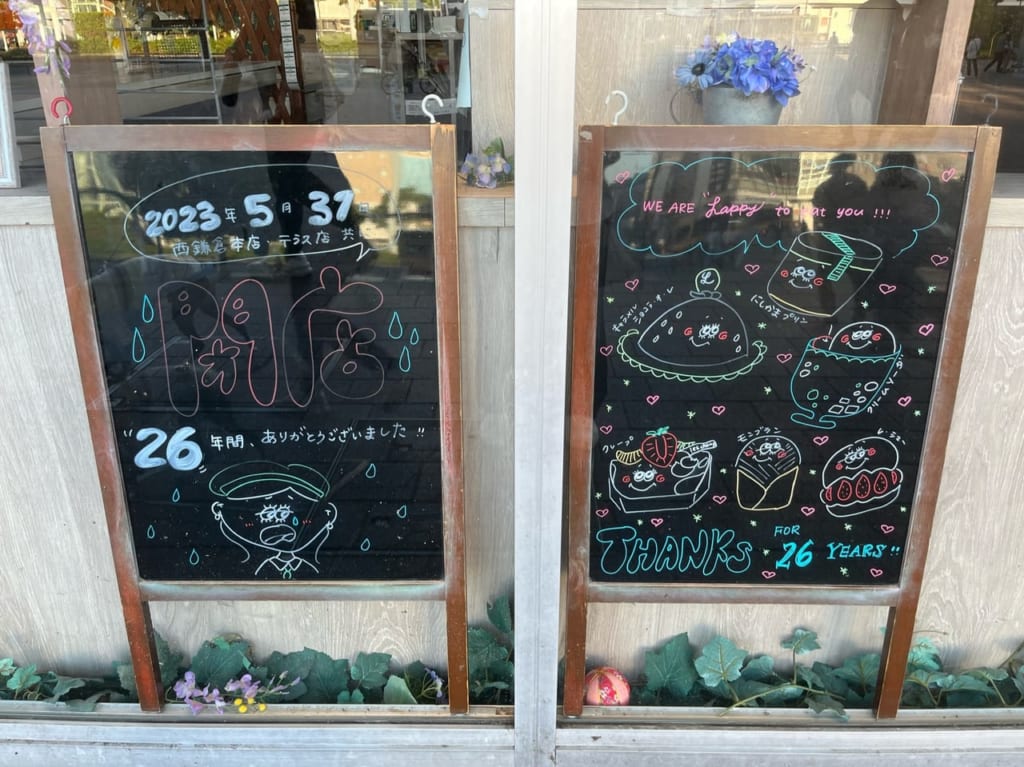 2023年5月31日
西鎌倉本店・テラス店 共
閉店
"26"年間、ありがとうございました!!
WE ARE "Happy" to that you !!!
にしかまプリン
キャラメル
ショコラ・オ・レ
クリームソーダ
クレープ
モンブラン
レ・シュー
THANKS FOR 26 YEARS!!